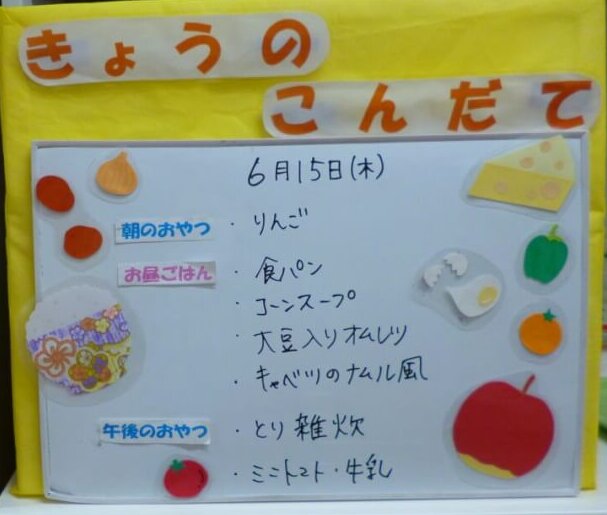 きょうの
こんだて
6月15日(木)
朝のおやつ ・りんご
お昼ごはん ・食パン
・コーンスープ
・大豆入りオムレツ
・キャベツのナムル風
午後のおやつ ・とり雑炊
・ミニトマト・牛乳